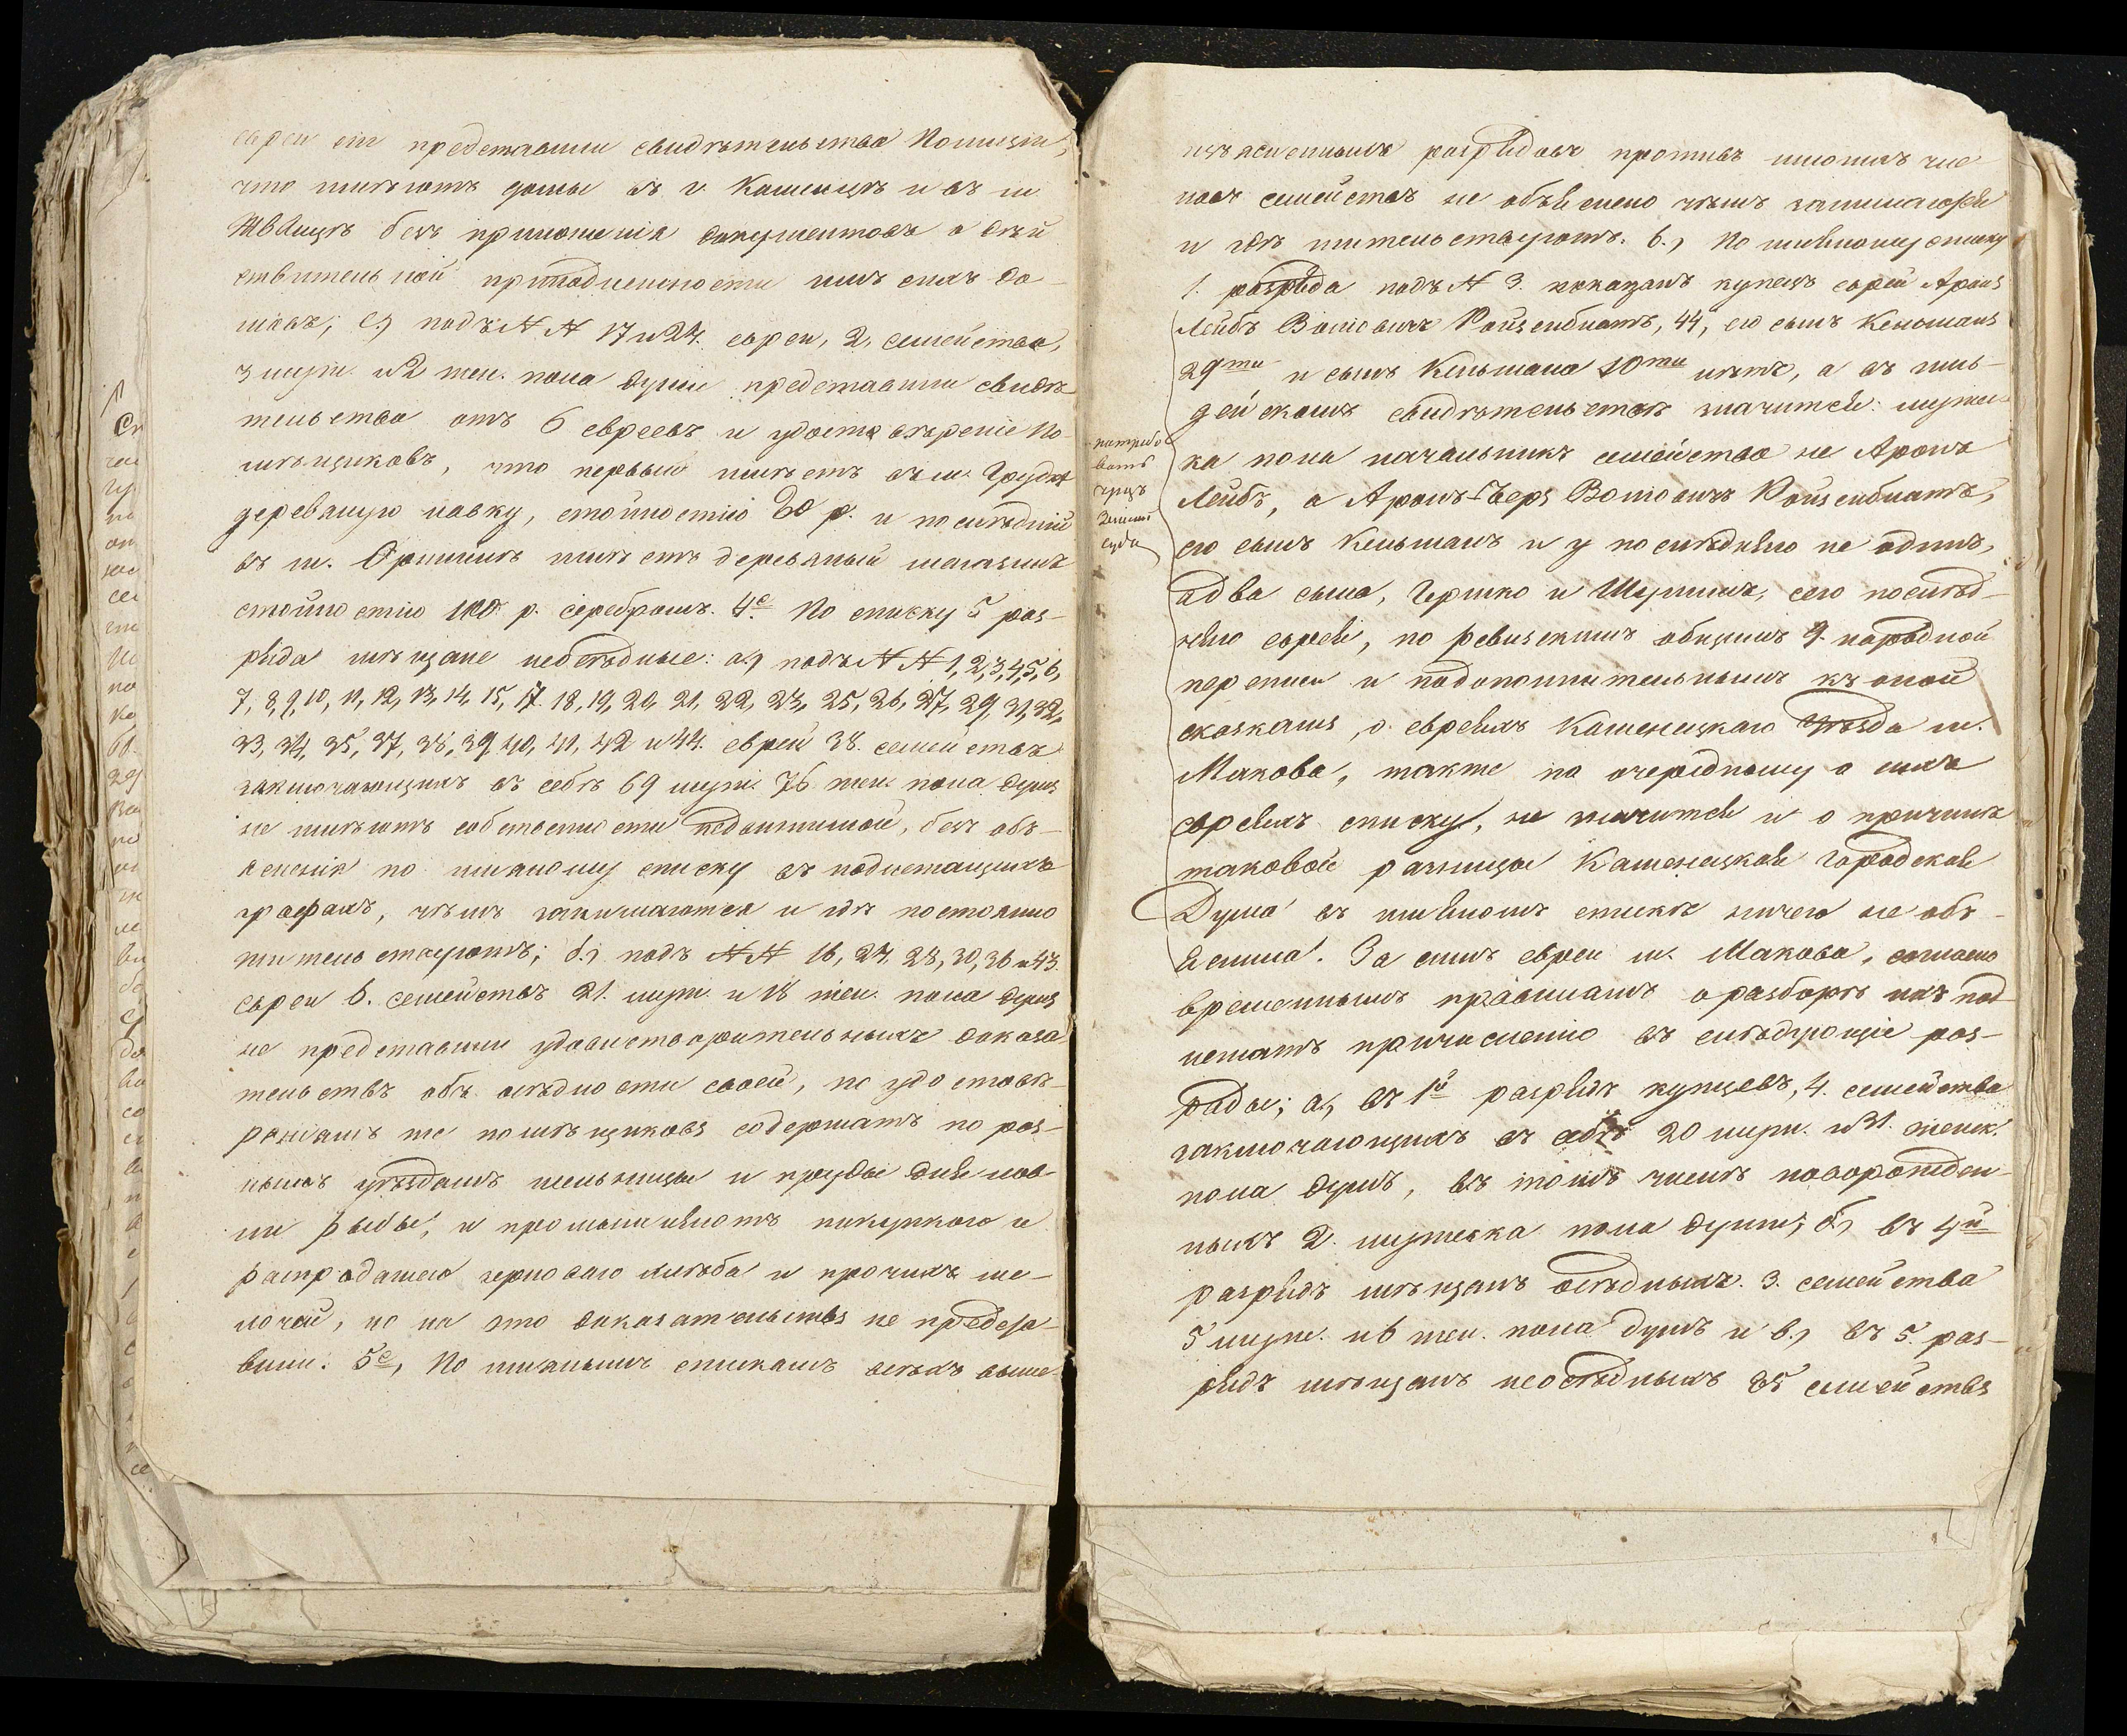 евреи сіи представили свидѣтельства Полиціи,
что имѣютъ домы въ г. Каменцѣ и въ м.
Жванцѣ безъ приложенія документовъ о дѣй
ствительной принадлежности имъ сихъ до-
мовъ; с.) подъ №№ 17 и 24. евреи, 2, семейства,
3 муж. и 2 жен. пола души представили свидѣ
тельства отъ 6 евреевъ и удостовѣреніе По-
мѣщиковъ, что первый имѣетъ въ м. Грудкѣ
деревяную лавку, стоимостію 80 р. и послѣдній
въ м. Орининѣ имѣетъ деревяный магазинъ
стоимостію 100 р. серебромъ. 4е По списку 5 раз-
ряда мѣщане неосѣдлые: а.) подъ №№ 1, 2, 3, 4, 5, 6,
7, 8, 9, 10, 11, 12, 13, 14, 15, 17. 18, 19, 20, 21, 22, 23, 25, 26, 27, 29, 31, 32,
33, 34, 35, 37, 38, 39, 40, 41, 42 и 44. евреи 38. семействъ
заключающихъ въ себѣ 69 муж. 76 жен. пола душъ
не имѣютъ собственности недвижимой, безъ объ-
ясненія по имянному списку въ подлежащихъ
графахъ, чѣмъ занимаются и гдѣ постоянно
жительствуютъ; б.) подъ №№ 16, 24, 28, 30, 36 и 43.
евреи 6. семействъ 21. муж. и 18 жен. пола душъ
не представили удовлетворительныхъ доказа
тельствъ объ осѣдлости своей, по удостовѣ-
реніямъ же помѣщиковъ содержатъ по раз-
нымъ уѣздамъ мельницы и пруды для лов-
ли рыбы, и промышляютъ покупкою и
распродажею зерноваго хлѣба и прочихъ ме-
лочей, но на это доказательствъ не предста-
вили. 5е, По имяннымъ спискамъ всѣхъ выше
изъясненныхъ разрядовъ противъ многихъ чле
новъ семействъ не объяснено чѣмъ занимаются
и гдѣ жительствуютъ. 6., По имянному списку
1. разряда подъ № 3. показанъ купецъ еврей Аронъ
Лейбъ Вольовичъ Койзенблатъ, 44, его сынъ Кельманъ
29ти и сынъ Кельмана 10ти лѣтъ, а въ
дейскомъ свидѣтельствѣ значится: мужес
ка пола начальникъ семейства не Аронъ
Лейбъ, а Аронъ-Беръ Вольовичъ Койзенблатъ,
его сынъ Кельманъ и у послѣдняго не одинъ,
а два сына, Гершко и Шулимъ, сего послѣд-
няго еврея, по ревизскимъ общимъ 9. народной
переписи и подополнительнымъ къ оной
сказкамъ, о евреяхъ Каменецкаго уѣзда м.
Макова, также по очередному о сихъ
евреяхъ списку, не значится и о причинѣ
таковой разницы Каменецкая Городская
Дума въ имянномъ спискѣ ничего не объ-
яснила. За симъ евреи м. Макова, согласно
временнымъ правиламъ о разборѣ ихъ под
лежатъ причисленію въ слѣдующіе раз-
ряды; а, въ 1й разрядъ купцевъ, 4. семейства
заключающихъ въ себѣ 20 муж. и 21. женск.
пола душъ, въ томъ числѣ новорожден-
ныхъ 2. мужеска пола души; б, въ 4й
разрядъ мѣщанъ осѣдлыхъ. 3. семейства
5 муж. и 6 жен. пола душъ и в, въ 5. раз-
рядъ мѣщанъ неосѣдлыхъ 35 семействъ
потребо
вать
чрезъ
Земскій
судъ